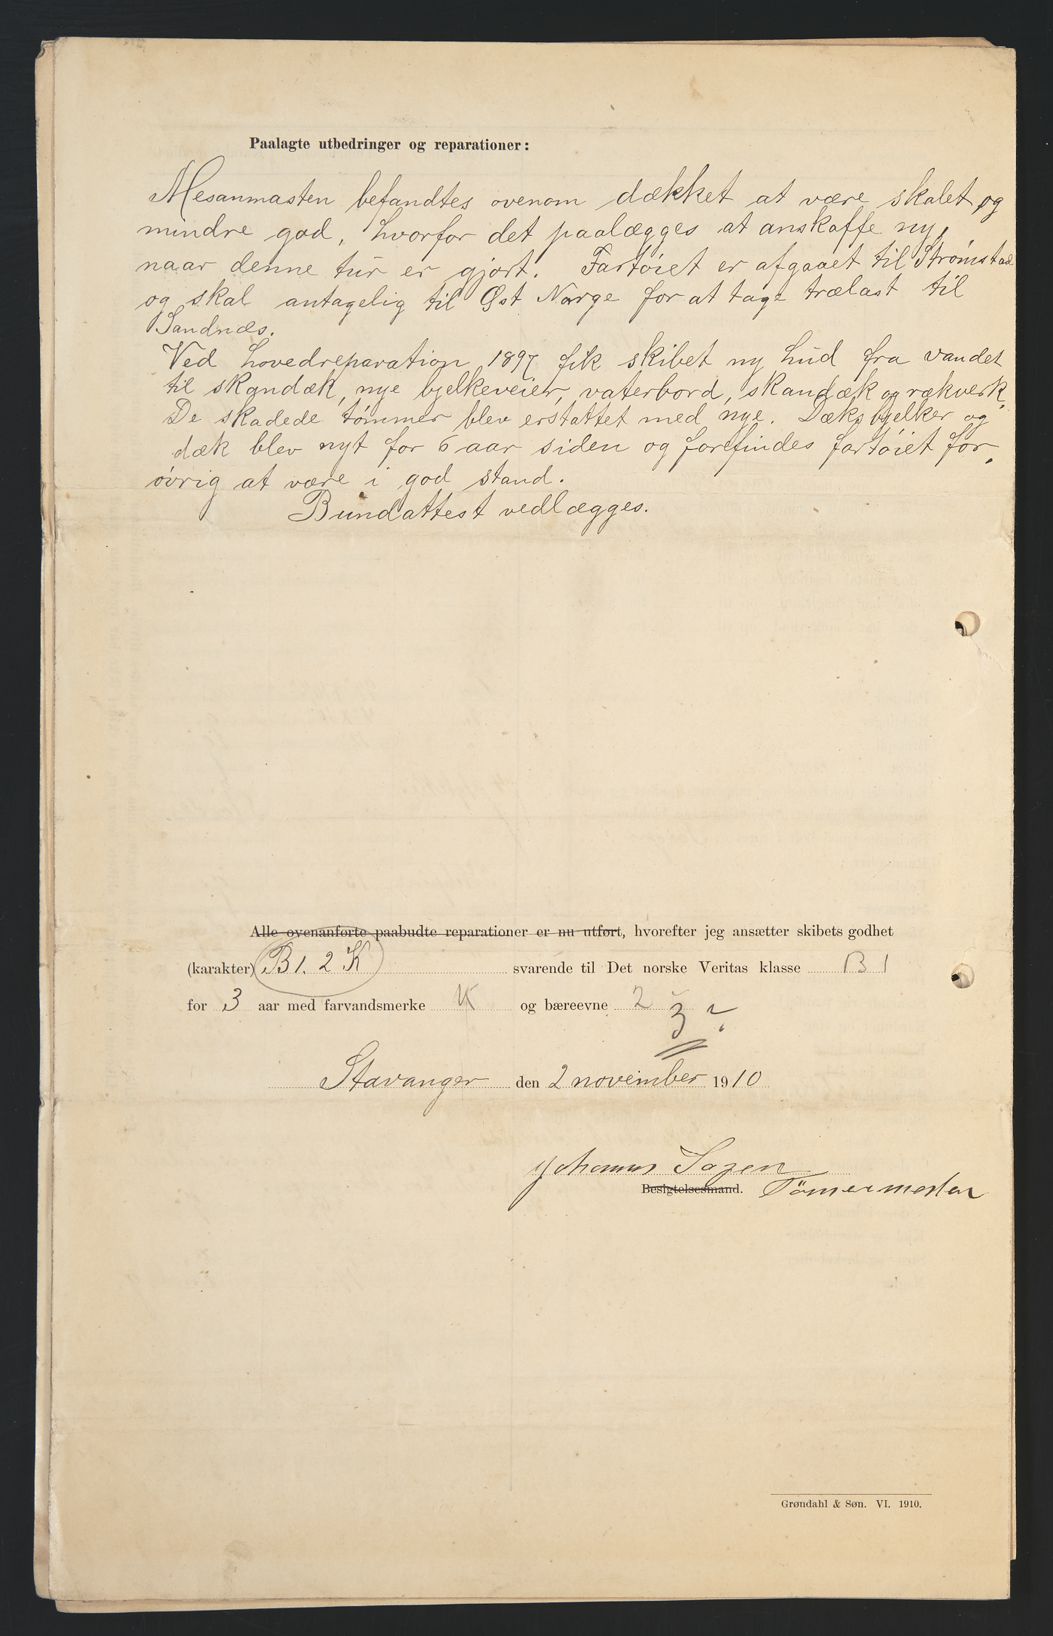 Paalagte utbedringer og reparationer:
Mesanmasten befandtes ovenom dækket at være skalet og
mindre god, hvorfor det paalægges at anskaffe ny,
naar denne tur er gjort. Fartöiet er afgaaet til Strömstad
og skal antagelig til Øst Norge for at tage trælast til
Sandnæs.
Ved hovedreparation 1897 fik skibet ny hud fra vandet
til skandæk, nye bjelkeveier, vaterbord, skandæk og rækverk.
De skadede tömmer blev erstattet med nye. Dæksbjelker og
dæk blev nyt for 6 aar siden og forefindes fartöiet for-
övrig at være i god stand.
Bundattest vedlægges.
Alle ovenanførte paabudte reparationer er nu utført, hvorefter jeg ansætter skibets godhet
(karakter) B 1. 2 K svarende til Det norske Veritas klasse B 1
for 3 aar med farvandsmerke K og bæreevne 2
3 ?
Stavanger den 2 november 1910
Johannes Sazen
Besigtelsesmand. Tömermester
Grøndahl & Søn. VI. 1910.